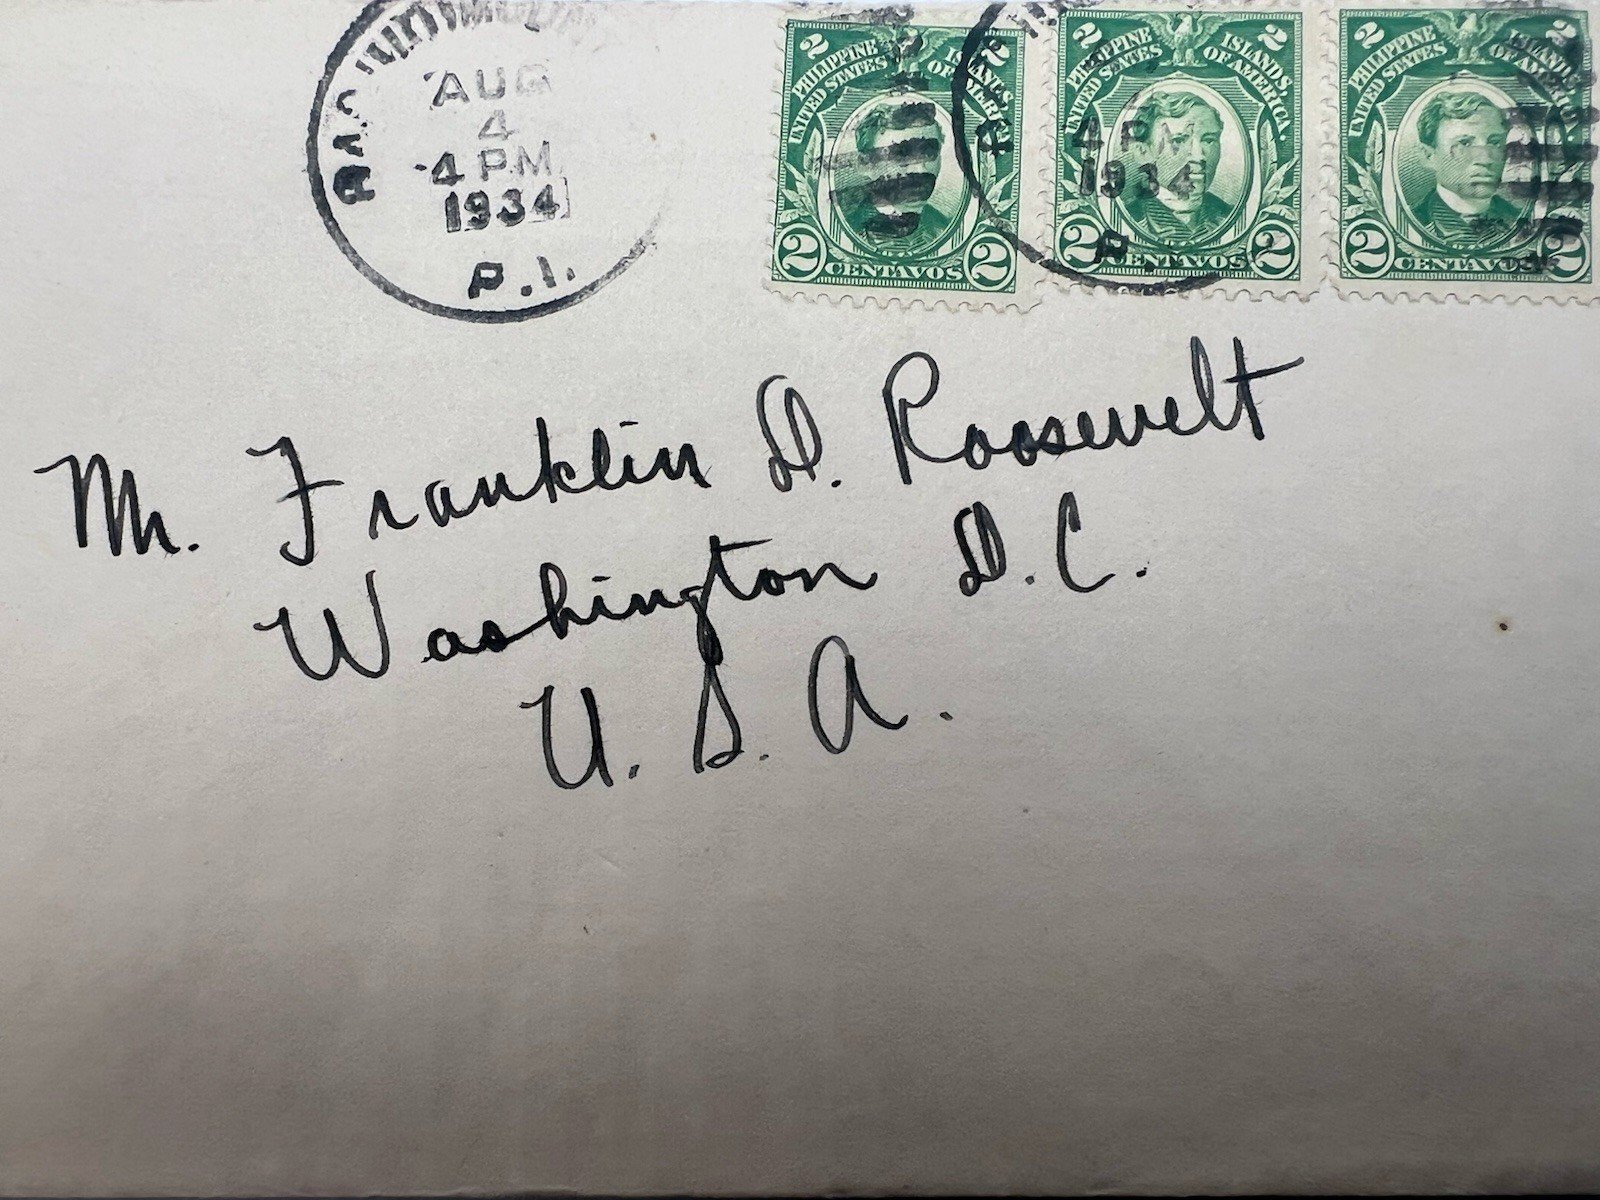 AUG
4
4 PM
1934
P.I.
2 PHILIPPINE ISLANDS 2
UNITED STATES OF AMERICA
2 CENTAVOS 2
2 PHILIPPINE ISLANDS 2
UNITED STATES OF AMERICA
4 PM
1934
P.
2 CENTAVOS 2
2 PHILIPPINE ISLANDS 2
UNITED STATES OF AMERICA
2 CENTAVOS 2
Mr. Franklin D. Roosevelt
Washington D.C.
U.S.A.